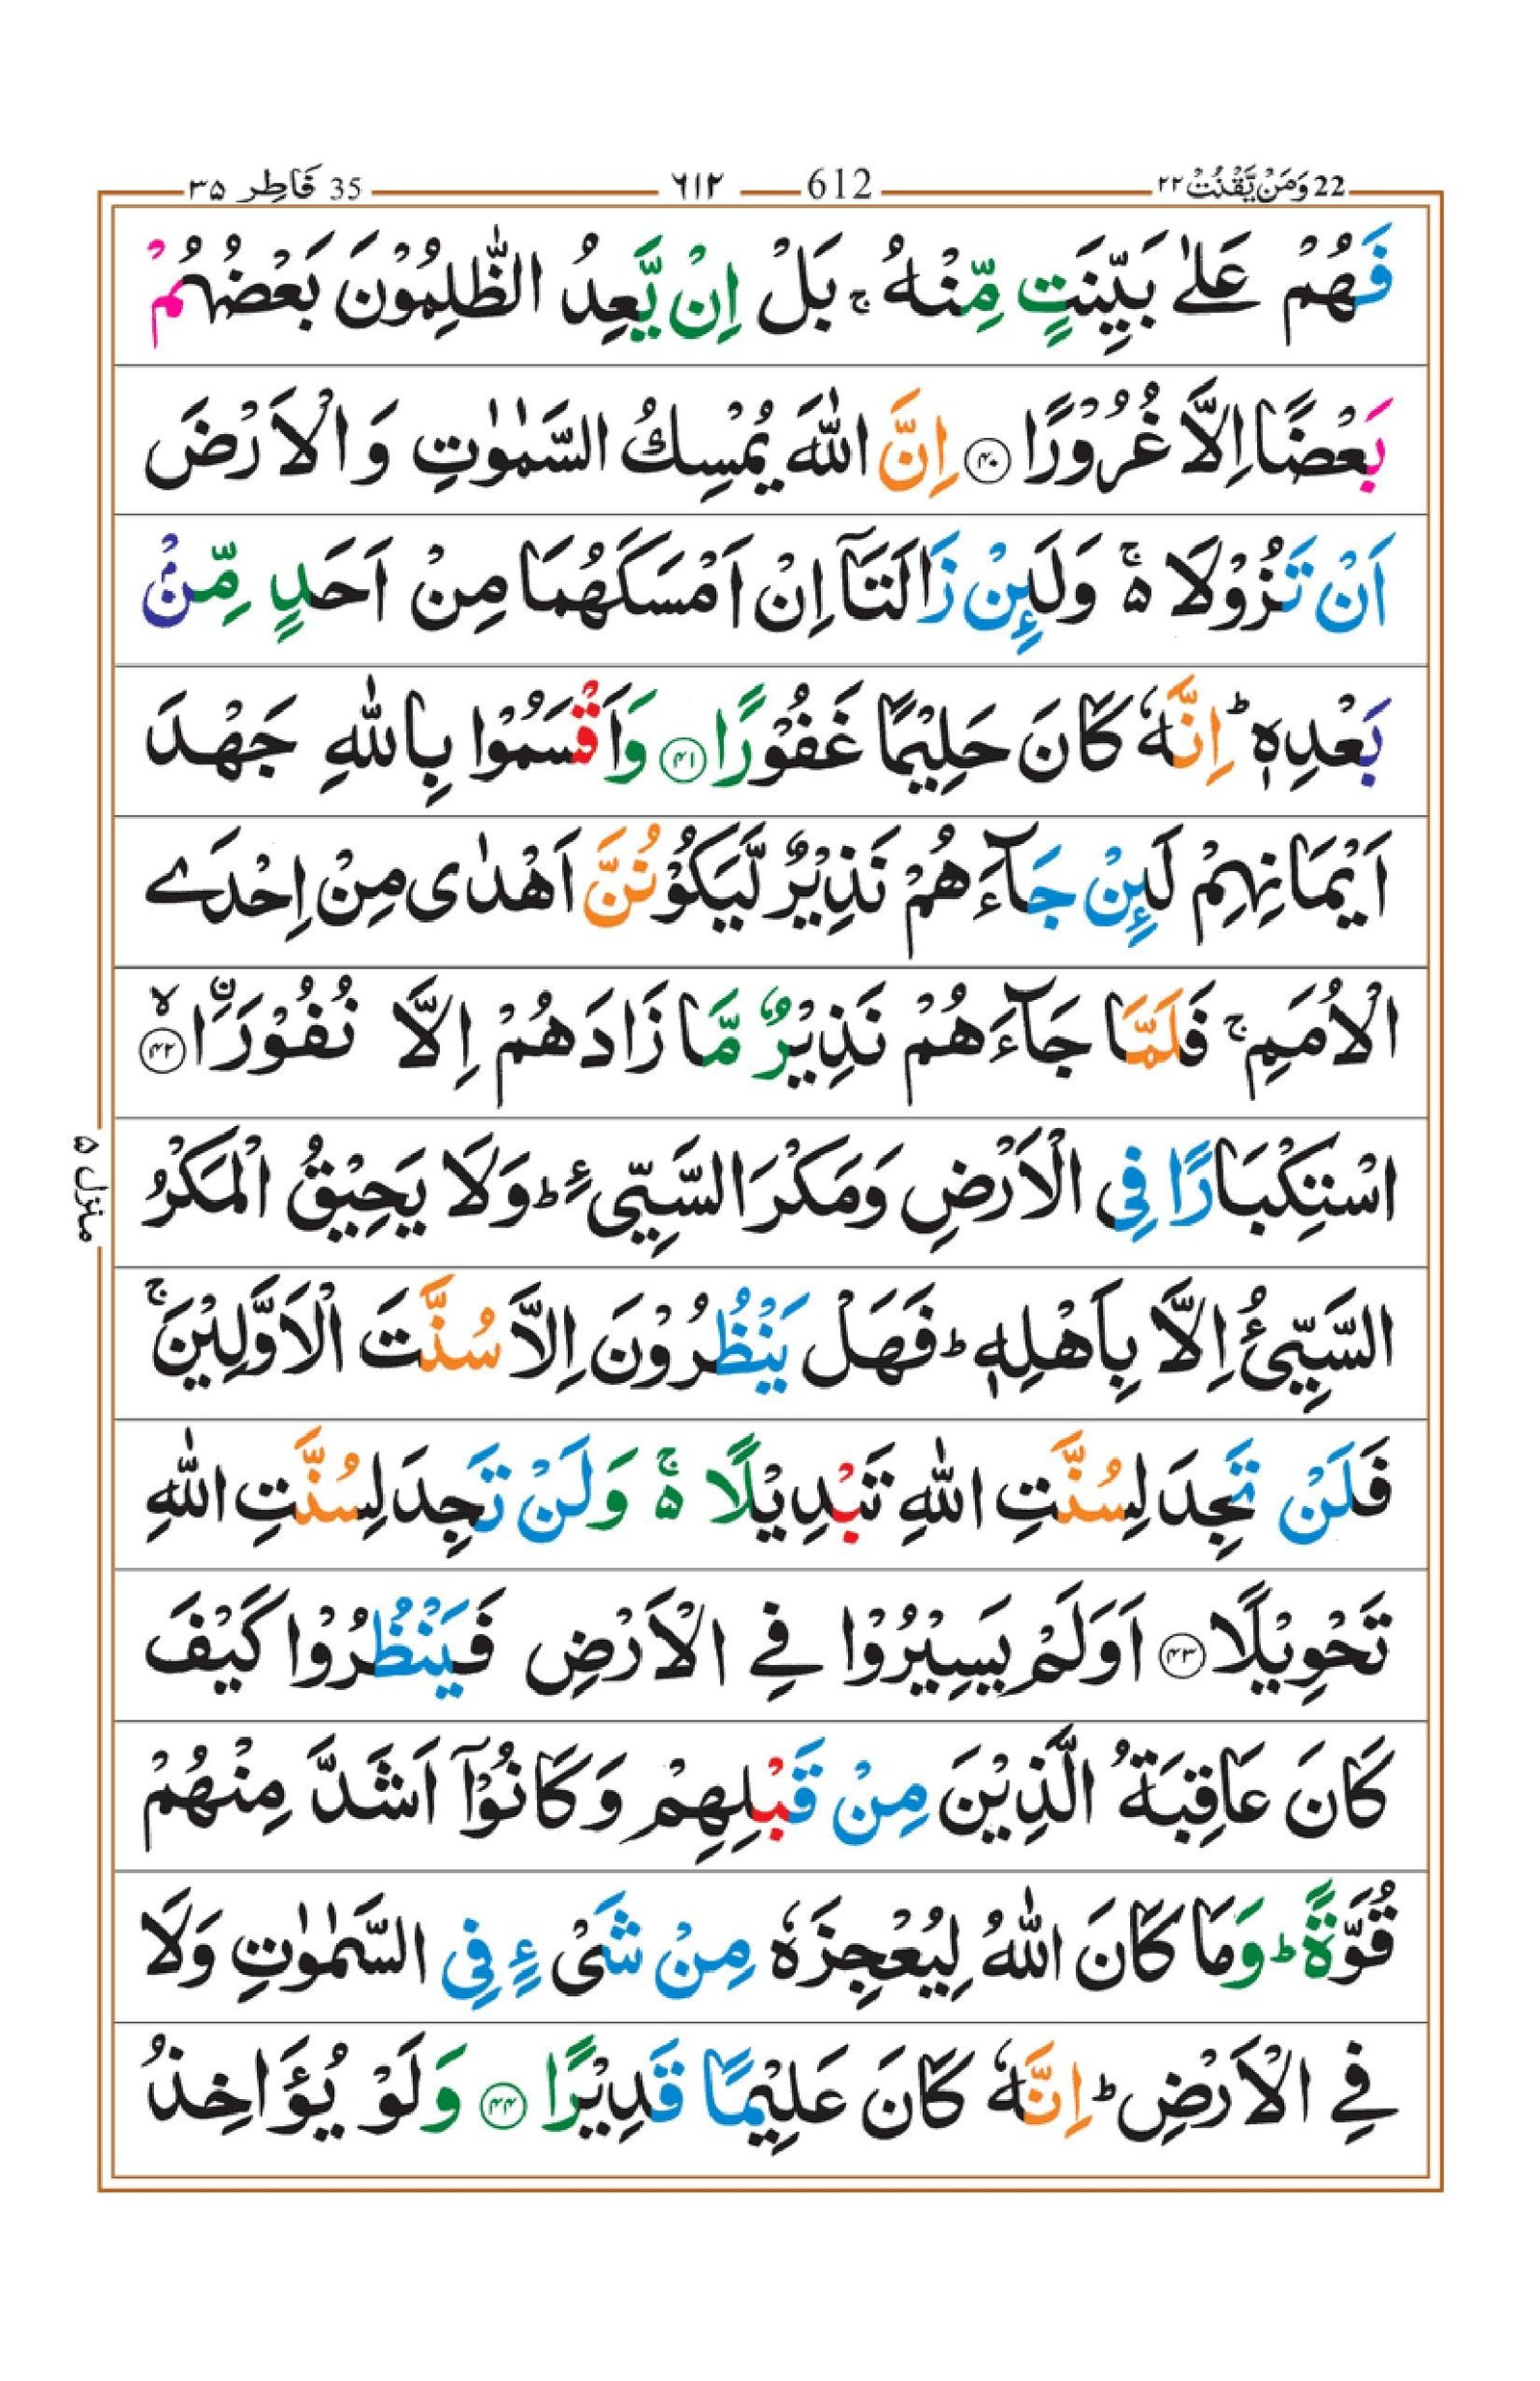 22 وَمَنْ يَّقْنُتْ ٢٢ 612 ٦١٢ 35 فَاطِر ٣٥
فَهُمْ عَلٰى بَيِّنَتٍ مِّنْهُ ۚ بَلْ اِنْ يَّعِدُ الظّٰلِمُوْنَ بَعْضُهُمْ
بَعْضًا اِلَّا غُرُوْرًا ۝۴۰ اِنَّ اللّٰهَ يُمْسِكُ السَّمٰوٰتِ وَالْاَرْضَ
اَنْ تَزُوْلَا ۵ۚ وَلَئِنْ زَالَتَاۤ اِنْ اَمْسَكَهُمَا مِنْ اَحَدٍ مِّنْۢ
بَعْدِهٖ ؕ اِنَّهٗ كَانَ حَلِيْمًا غَفُوْرًا ۝۴۱ وَاَقْسَمُوْا بِاللّٰهِ جَهْدَ
اَيْمَانِهِمْ لَئِنْ جَآءَهُمْ نَذِيْرٌ لَّيَكُوْنُنَّ اَهْدٰى مِنْ اِحْدَى
الْاُمَمِ ۚ فَلَمَّا جَآءَهُمْ نَذِيْرٌ مَّا زَادَهُمْ اِلَّا نُفُوْرَاۨ ۙ۝۴۲
اسْتِكْبَارًا فِى الْاَرْضِ وَمَكْرَ السَّيِّئِ ؕ وَلَا يَحِيْقُ الْمَكْرُ
السَّيِّئُ اِلَّا بِاَهْلِهٖ ؕ فَهَلْ يَنْظُرُوْنَ اِلَّا سُنَّتَ الْاَوَّلِيْنَ ۚ
فَلَنْ تَجِدَ لِسُنَّتِ اللّٰهِ تَبْدِيْلًا ۵ۚ وَلَنْ تَجِدَ لِسُنَّتِ اللّٰهِ
تَحْوِيْلًا ۝۴۳ اَوَلَمْ يَسِيْرُوْا فِى الْاَرْضِ فَيَنْظُرُوْا كَيْفَ
كَانَ عَاقِبَةُ الَّذِيْنَ مِنْ قَبْلِهِمْ وَكَانُوْۤا اَشَدَّ مِنْهُمْ
قُوَّةً ؕ وَمَا كَانَ اللّٰهُ لِيُعْجِزَهٗ مِنْ شَىْءٍ فِى السَّمٰوٰتِ وَلَا
فِى الْاَرْضِ ؕ اِنَّهٗ كَانَ عَلِيْمًا قَدِيْرًا ۝۴۴ وَلَوْ يُؤَاخِذُ
منزل ۵